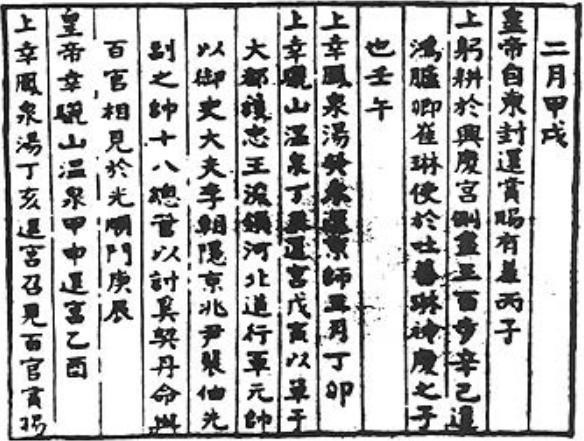 二月甲戌
皇帝自東封還賞賜有差丙子
上躬耕於興慶宮側盡三百步辛已遣
鴻臚卿崔琳使於吐蕃琳神慶之子
也壬午
上幸鳳泉湯癸未還京師月丁卯
上幸驪山温泉丁丑還宮戊寅以單于
大都護忠王浚領河北道行軍元帥
以御史大夫李朝隱京兆尹裴伷先
副之帥十八總管以討奚契丹命與
百官相見於光順門庚辰
皇帝幸驪山温泉甲申還宮乙酉
上幸鳳泉湯丁亥還宮召見百官賞賜